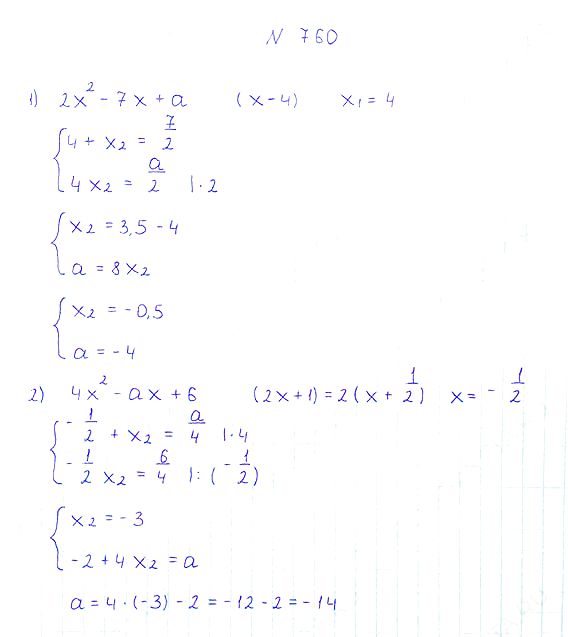 N 760
1) 2x² - 7x + a (x - 4) x₁ = 4
{ 4 + x₂ = 7/2
4x₂ = a/2 | · 2
{ x₂ = 3,5 - 4
a = 8x₂
{ x₂ = -0,5
a = -4
2) 4x² - ax + 6 (2x+1) = 2(x + 1/2) x = - 1/2
{ - 1/2 + x₂ = a/4 | · 4
- 1/2 x₂ = 6/4 | : (- 1/2)
{ x₂ = -3
-2 + 4x₂ = a
a = 4 · (-3) - 2 = -12 - 2 = -14